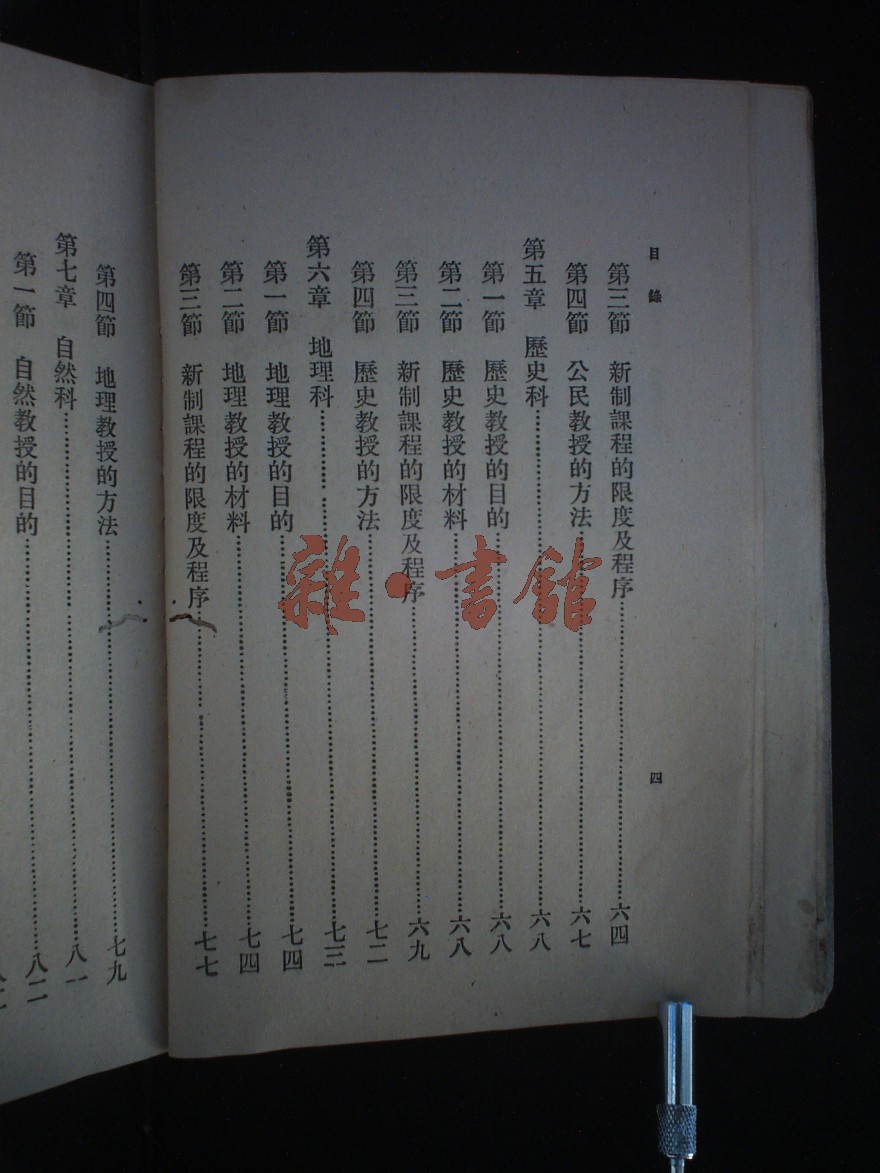 目錄
四
第三節 新制課程的限度及程序……六四
第四節 公民教授的方法……六七
第五章 歷史科……六八
第一節 歷史教授的目的……六八
第二節 歷史教授的材料……六八
第三節 新制課程的限度及程序……六九
第四節 歷史教授的方法……七二
第六章 地理科……七三
第一節 地理教授的目的……七四
第二節 地理教授的材料……七四
第三節 新制課程的限度及程序……七七
第四節 地理教授的方法……七九
第七章 自然科……八一
第一節 自然教授的目的……八二
雜·書館